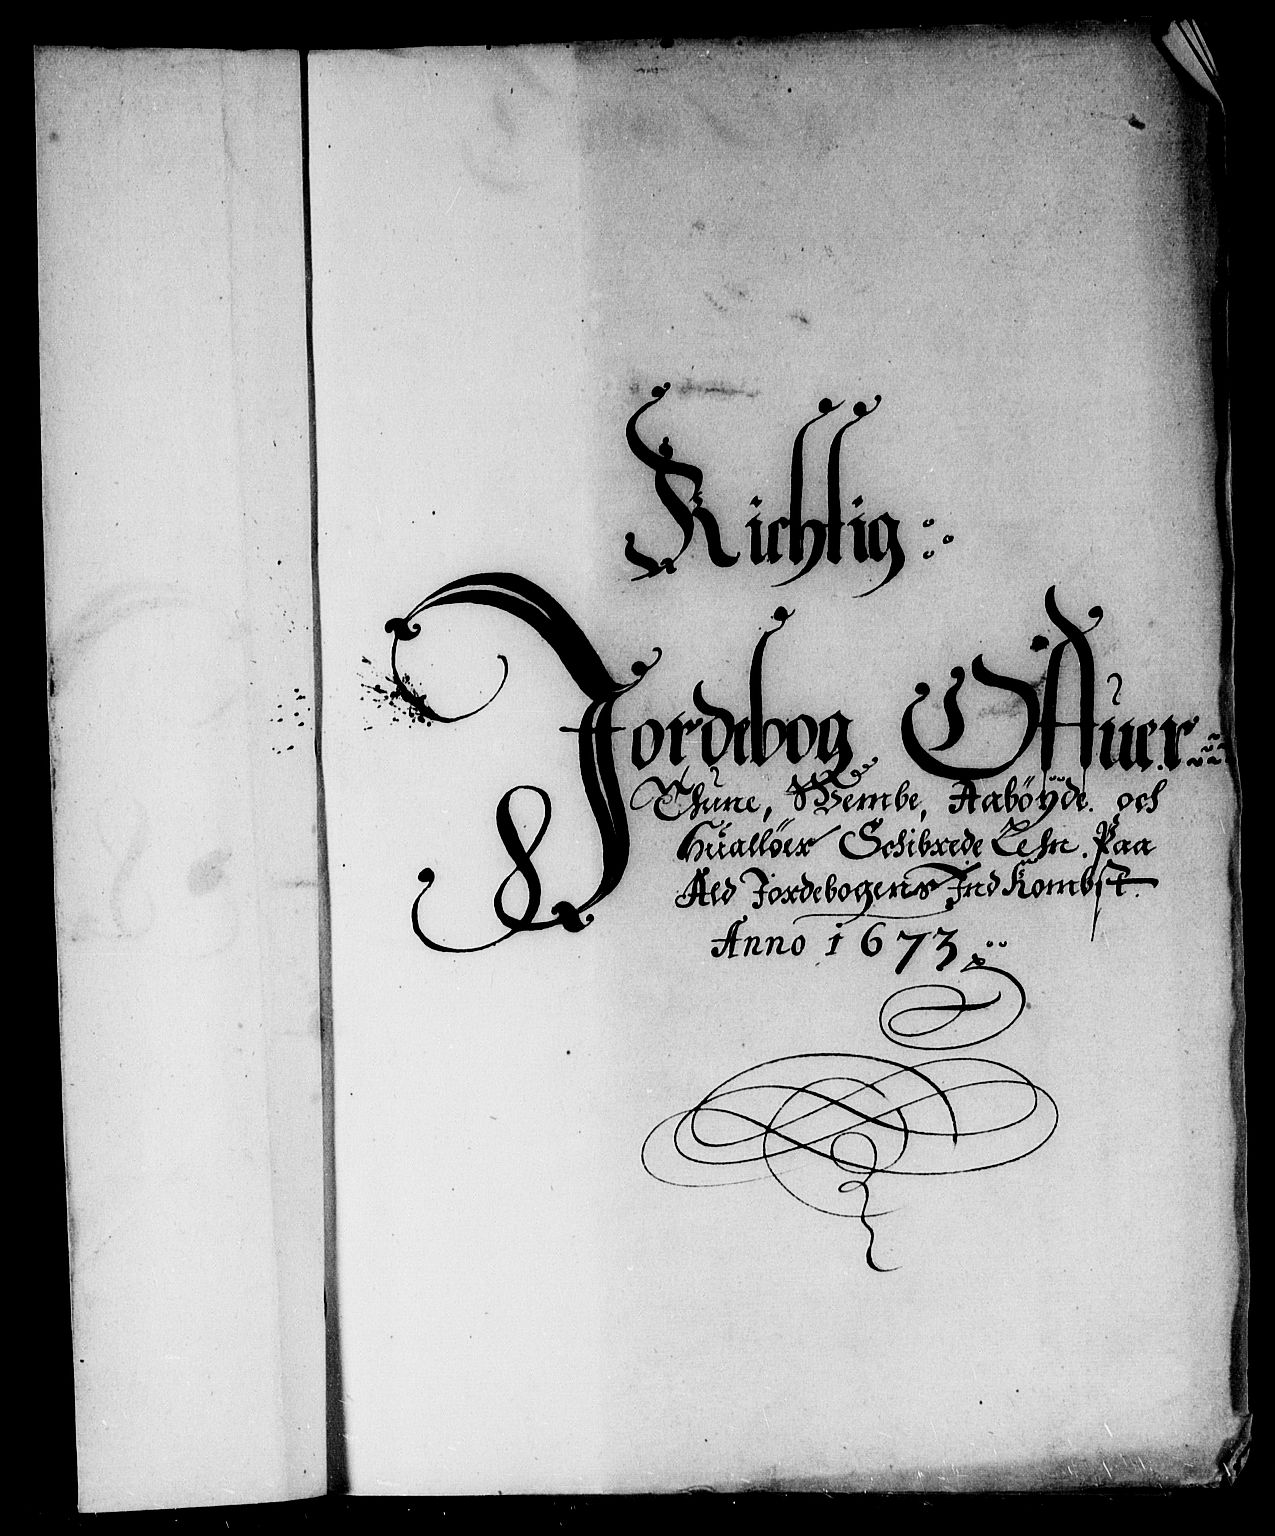 Richtig
Jordebog Offuer
Thune, Wembe, Aabÿgde och
Huallöer Schibrede Lehn. Paa
Ald Jordebogens IndKombst.
Anno 1673